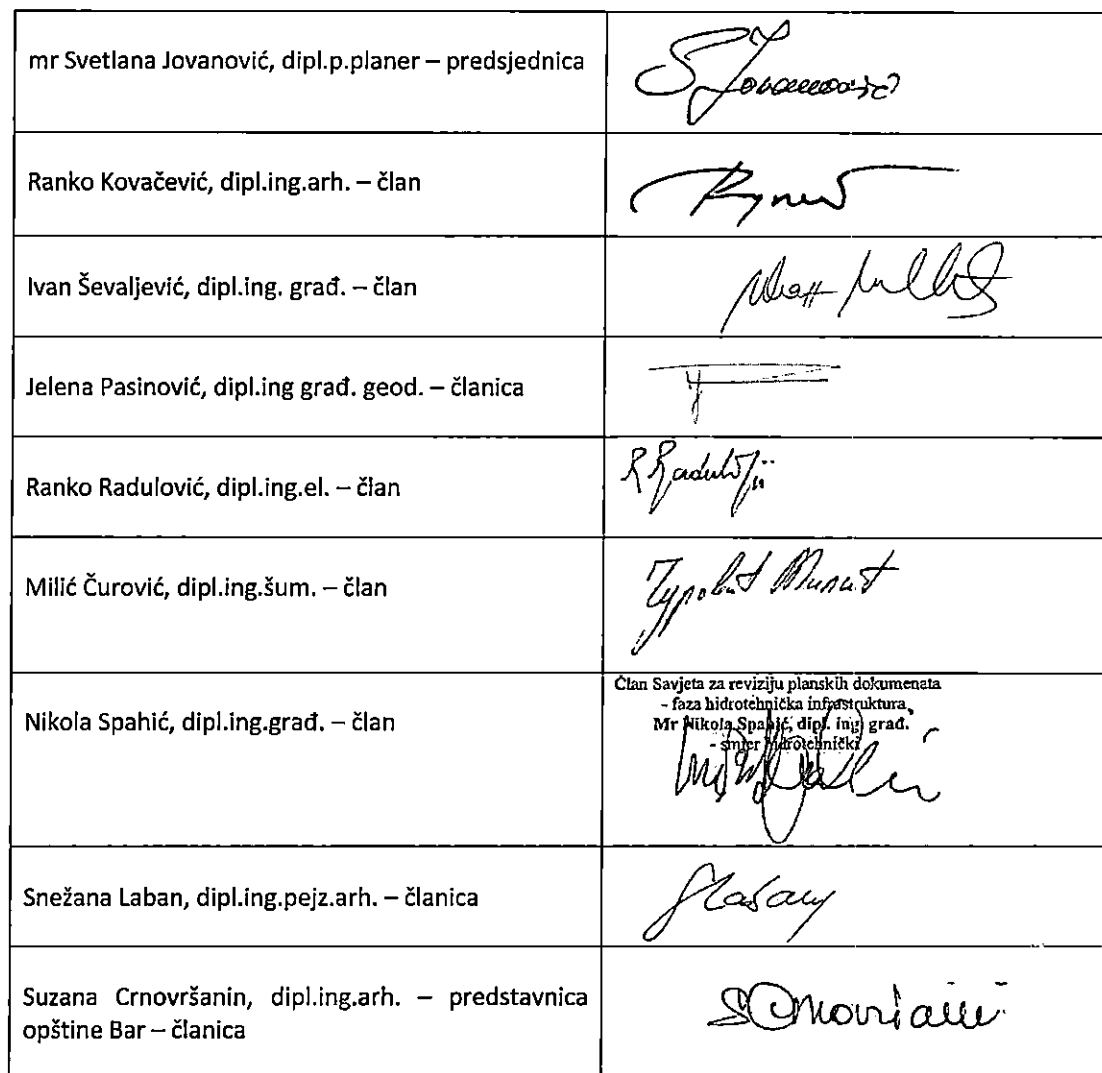 mr Svetlana Jovanović, dipl.p.planer – predsjednica
S Jovanović
Ranko Kovačević, dipl.ing.arh. – član
Ivan Ševaljević, dipl.ing. građ. – član
Jelena Pasinović, dipl.ing građ. geod. – članica
Ranko Radulović, dipl.ing.el. – član
R Radulović
Milić Čurović, dipl.ing.šum. – član
Nikola Spahić, dipl.ing.građ. – član
Član Savjeta za reviziju planskih dokumenata
- faza hidrotehnička infrastruktura
Mr Nikola Spahić, dipl. ing građ.
- smjer hidrotehnički
Snežana Laban, dipl.ing.pejz.arh. – članica
Suzana Crnovršanin, dipl.ing.arh. – predstavnica
opštine Bar – članica